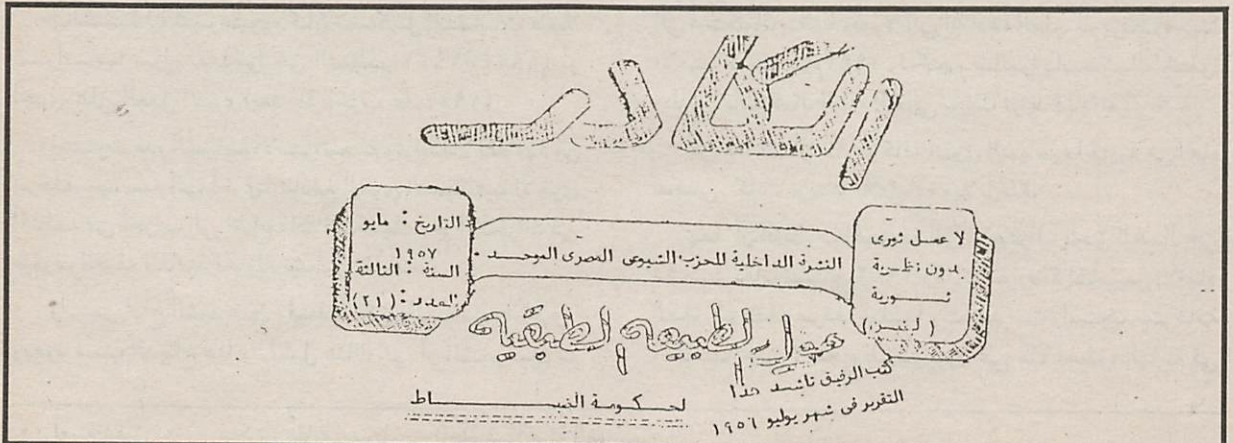 الكادر
لا عمل ثورى
بدون نظرية
ثورية
(لنين)
النشرة الداخلية للحزب الشيوعى المصرى الموحد .
التاريخ : مايو
١٩٥٧
السنة : الثالثة
العدد : (٢١)
حول الطبيعه الطبقيه
لحكومة الضباط
كتب الرفيق ناشد هذا
التقرير فى شهر يوليو ١٩٥٦